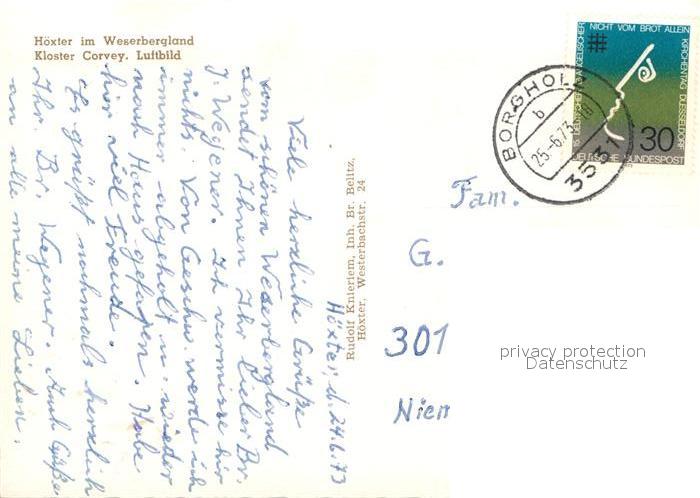 Höxter im Weserbergland
Kloster Corvey. Luftbild
Höxter, d. 24.6.73
Viele herzliche Grüße
vom schönen Weserbergland
sendet Ihnen Ihr lieber Br.
J. Wegener. Ich vermisse hier
nichts. Von Geschw. werde ich
immer abgeholt u. wieder
nach Haus gefahren. Habe
hier viel Freude.
Es grüßt nochmals herzlich
Ihr. Br. Wegener. Auch Grüße
an alle meine Lieben.
Rudolf Knieriem, Inh. Br. Belitz,
Höxter, Westerbachstr. 24
BORGHOLZ
b
25.-6.73
3531
NICHT VOM BROT ALLEIN
15. DEUTSCHER EVANGELISCHER
KIRCHENTAG DUESSELDORF
30
DEUTSCHE BUNDESPOST
Fam.
G.
301
Nien
privacy protection
Datenschutz